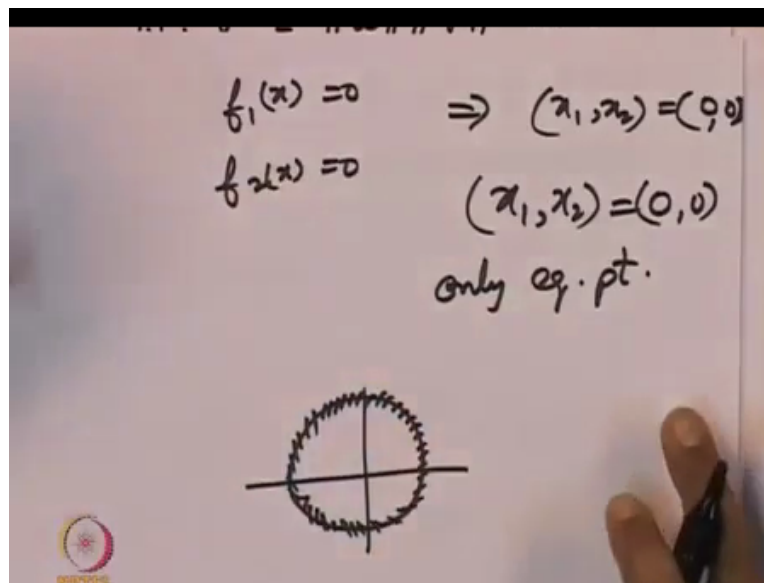 f₁(x) = 0 ⇒ (x₁, x₂) = (0, 0)
f₂(x) = 0
(x₁, x₂) = (0, 0)
only eq. pt.